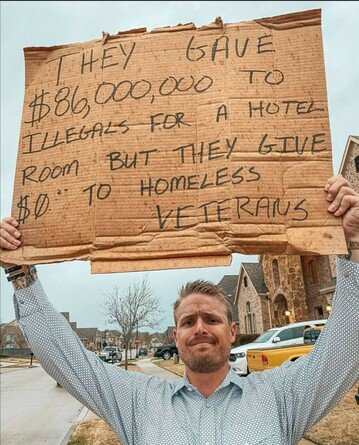 THEY GAVE
$86,000,000 TO
ILLEGALS FOR A HOTEL
ROOM BUT THEY GIVE
$0.00 TO HOMELESS
VETERANS